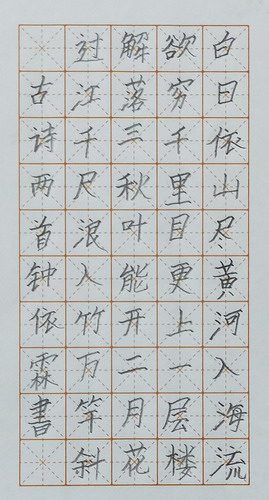 白日依山尽黄河入海流
欲穷千里目更上一层楼
解落三秋叶能开二月花
过江千尺浪入竹万竿斜
古诗两首钟依霖書